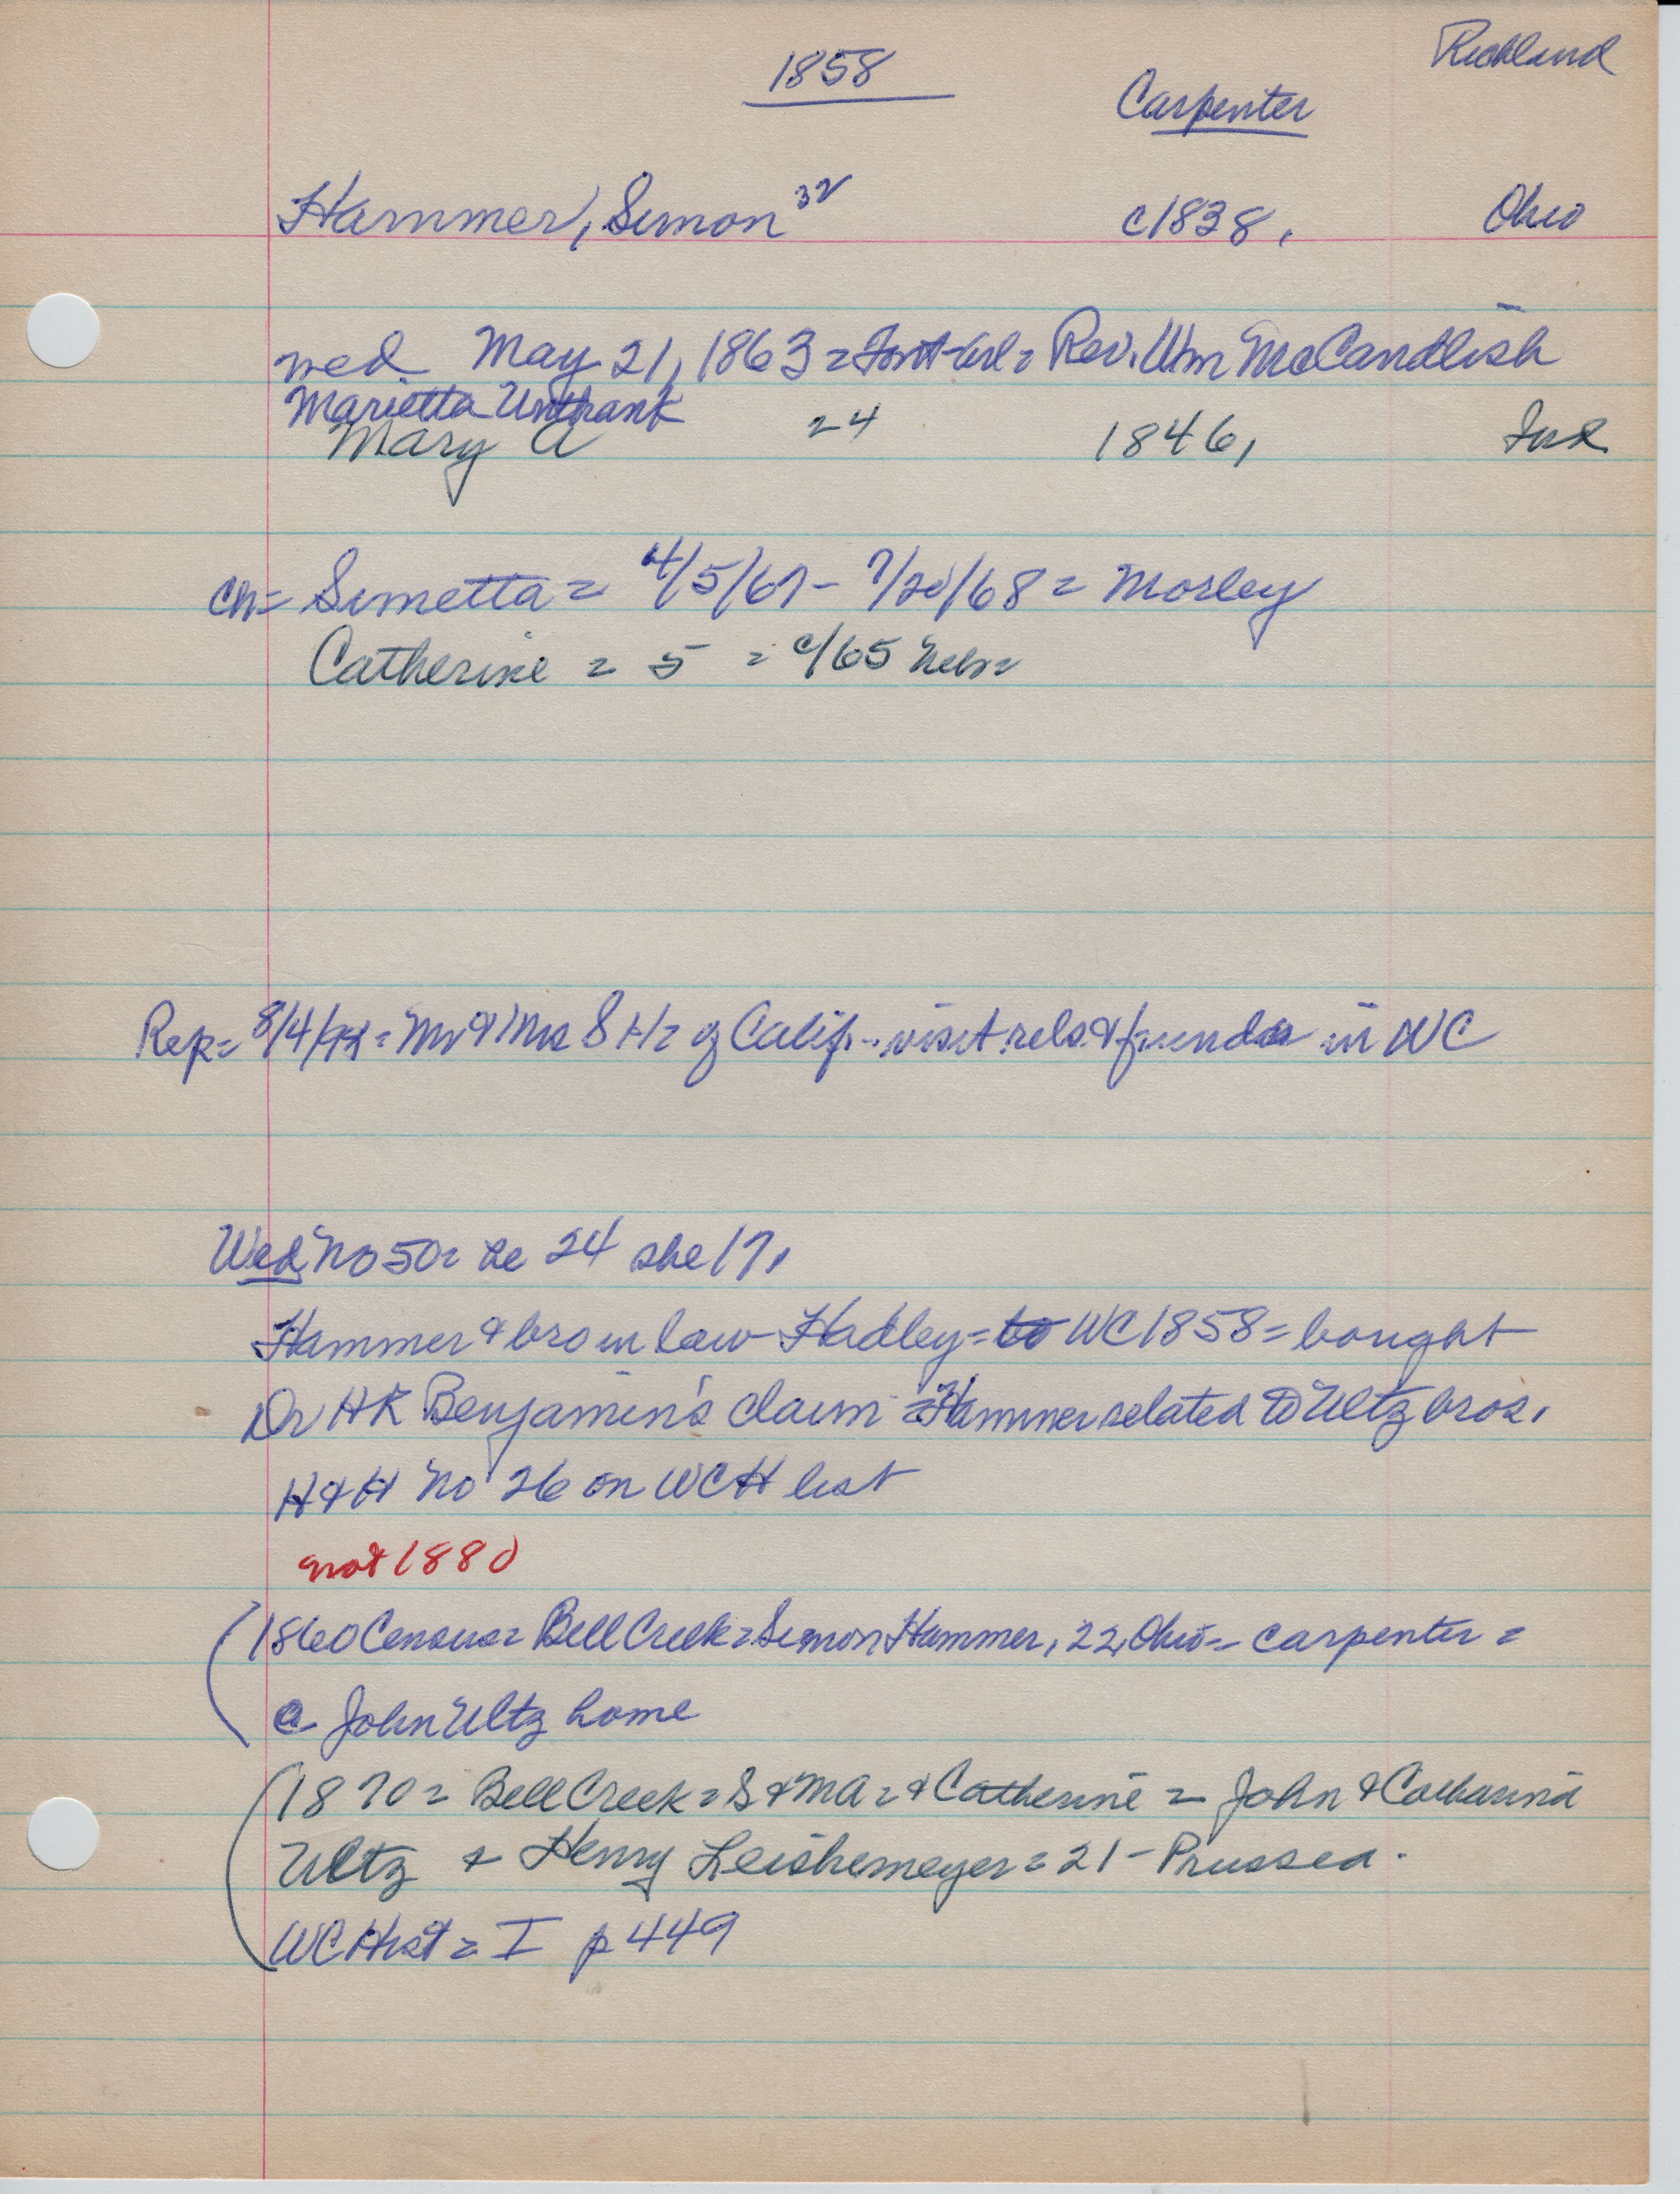 1858
Richland
Carpenter
Hammer, Simon 32 c1838, Ohio
wed May 21, 1863 = Font-Cal = Rev. Wm McCandlish
Marietta Unthank
Mary A 24 1846, Ind
ch= Simetta = 4/5/67 - 7/20/68 = Morley
Catherine = 5 = c/65 Neb=
Rep= 8/4/ = Mr & Mrs S H = of Calif -. visit rels & friends in WC
Wed No 50= he 24 she 17,
Hammer & bro in law - Hadley = to WC 1858 = bought
Dr HR Benjamin's claim = Hammer related to Ultz bros,
H & H No 26 on WCH list
not 1880
(1860 Census = Bell Creek = Simon Hammer, 22, Ohio = carpenter =
@ John Ultz home
(1870 = Bell Creek = S & MA = & Catherine = John & Catharina
Ultz & Henry Leishemeyer = 21 - Prussia.
WC Hist = I p 449